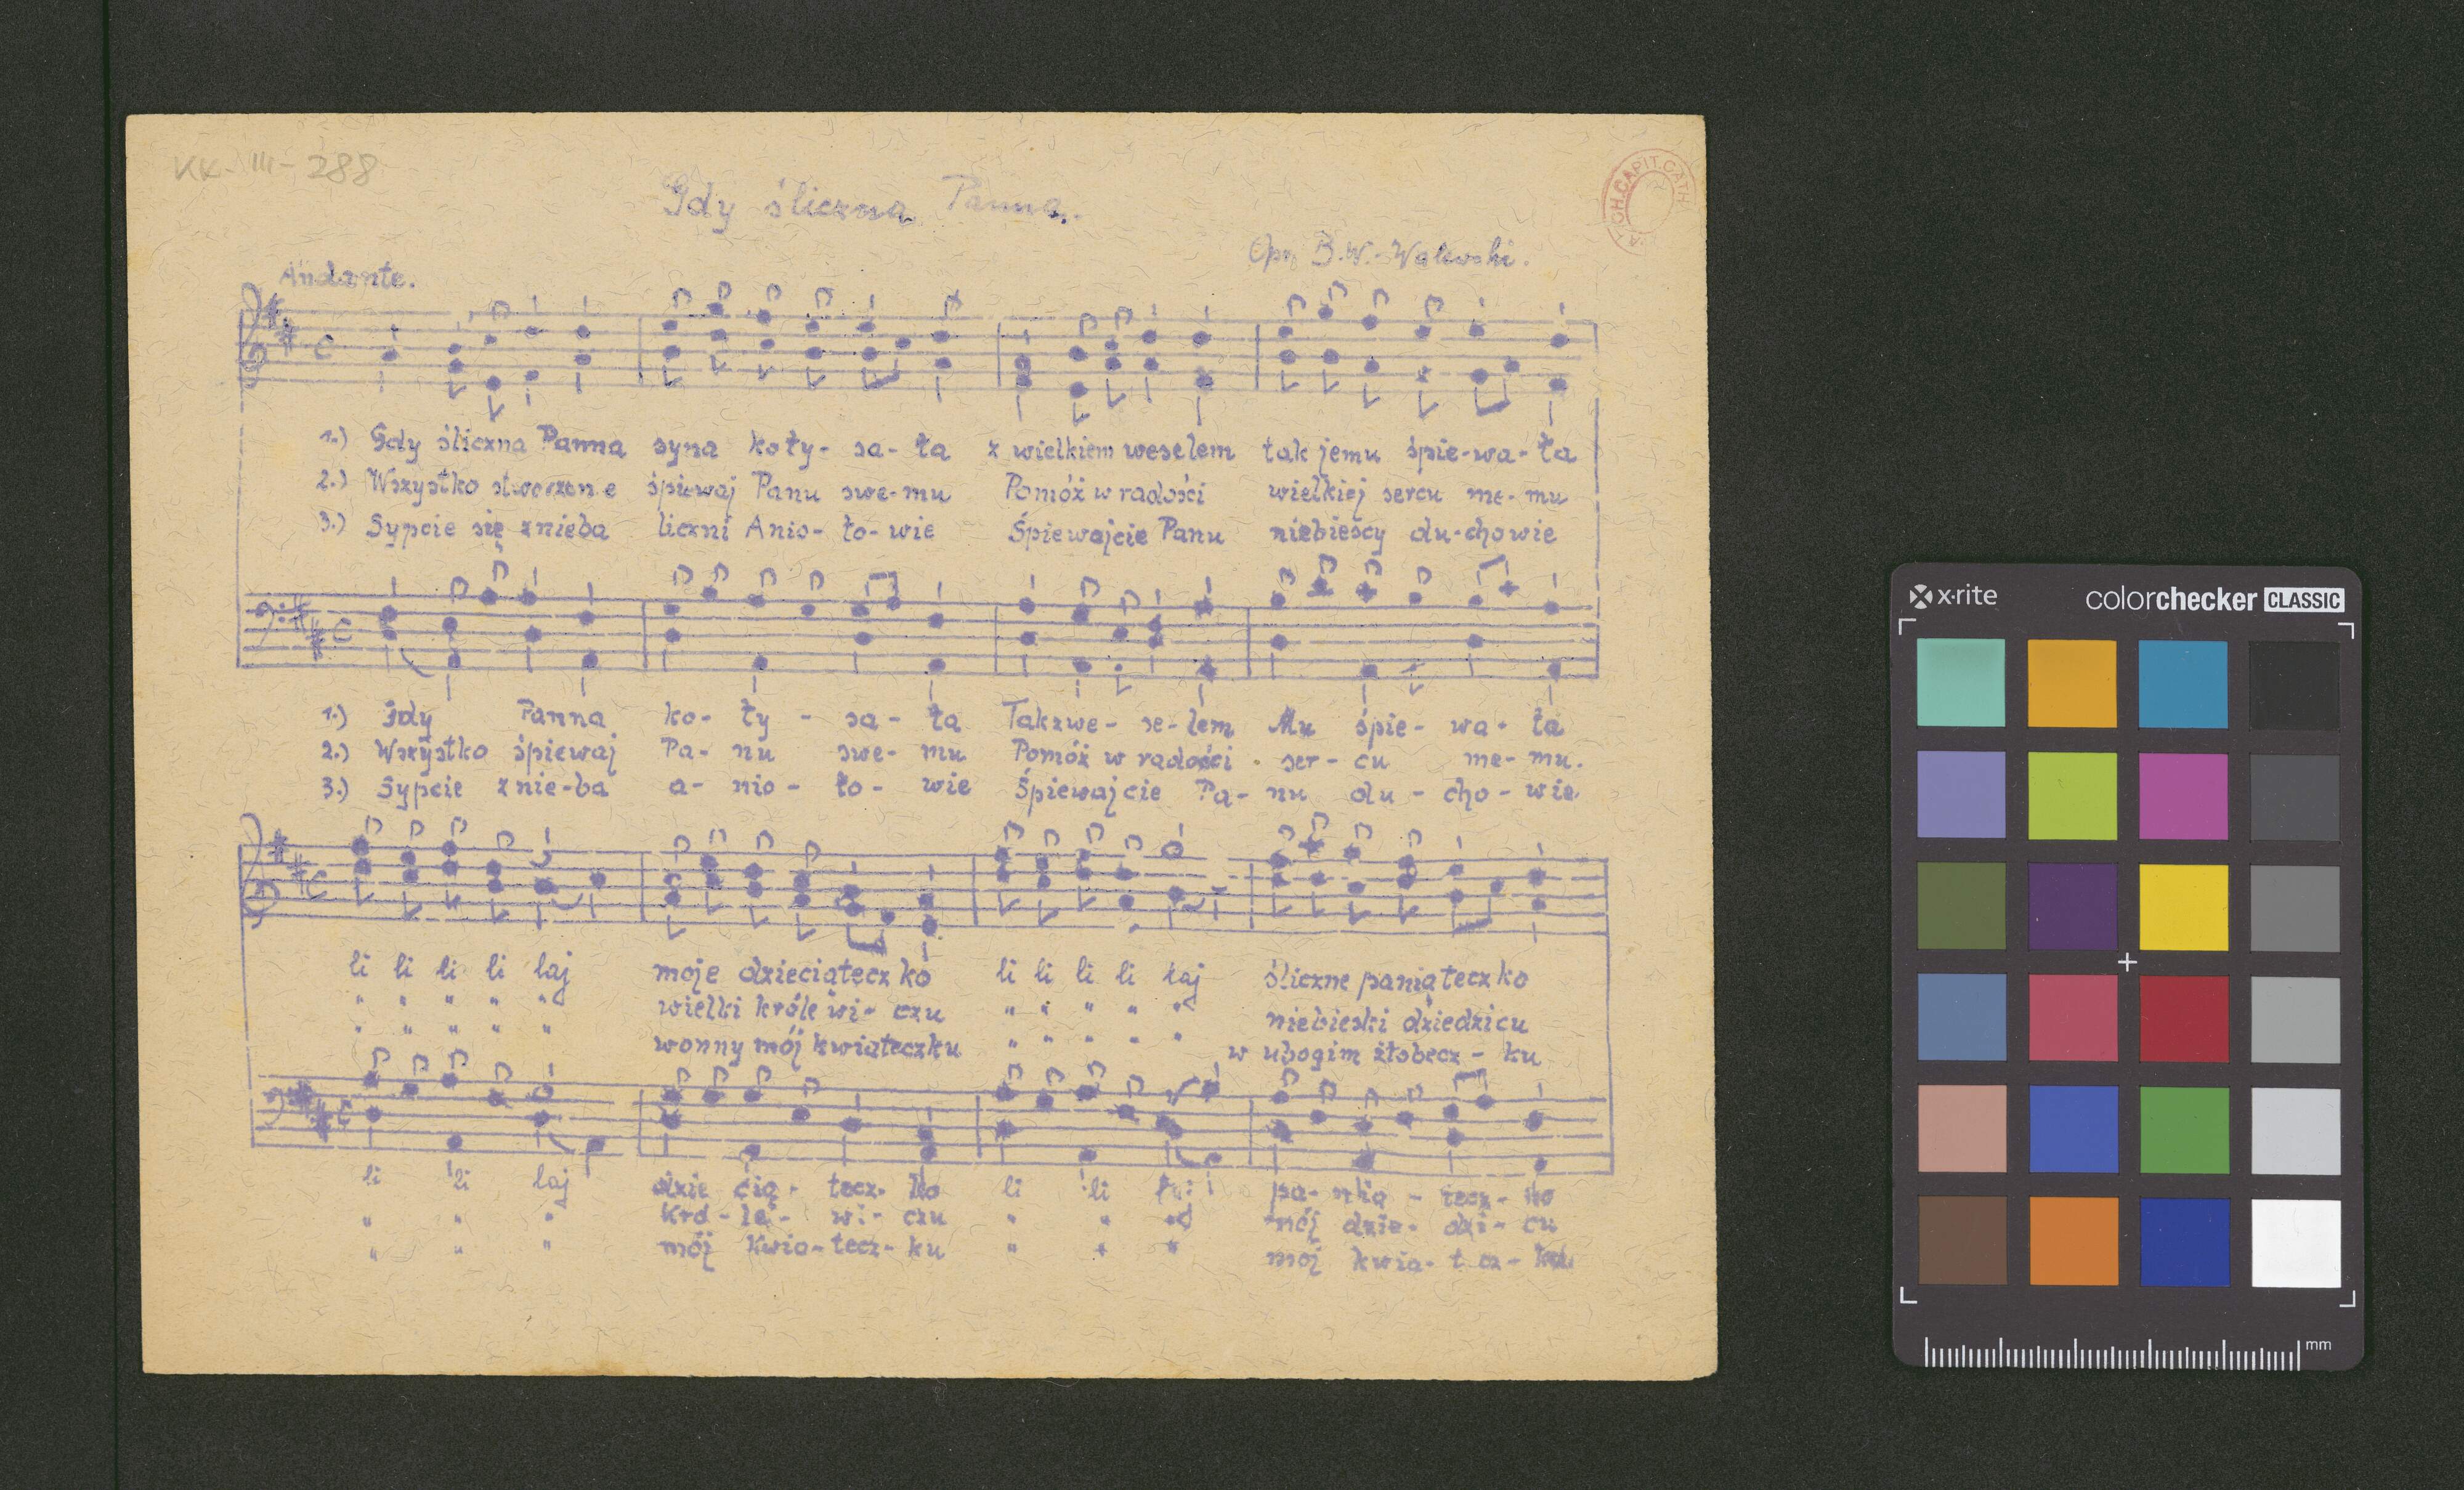 KK-III-288
Gdy śliczna Panna.
Opr. B.W.-Walewski.
Andante.
1.) Gdy śliczna Panna syna koły- sa- ła z wielkiem weselem tak jemu śpie-wa-ła
2.) Wszystko stworzenie śpiewaj Panu swe-mu Pomóż w radości wielkiej sercu me-mu
3.) Sypcie się z nieba liczni Anio- ło- wie Śpiewajcie Panu niebiescy du-chowie
1.) Gdy Panna ko- ły - sa- ła Takzwe- se-lem Mu śpie- wa- ła
2.) Wszystko śpiewaj Pa- nu swe- mu Pomóż w radości ser- cu me- mu.
3.) Sypcie z nie-ba a- nio- ło- wie Śpiewajcie Pa- nu du- cho- wie
li li li li laj moje dzieciąteczko li li li li laj śliczne paniąteczko
" " " " " wielki króle wi- czu " " " " " niebieski dziedzicu
" " " " " wonny mój kwiateczku " " " " " w ubogim żłobecz- ku
li li laj dzie cią- tecz- ko li li pa- nią - tecz- ko
" " " Kró- le- wi- czu " " " mój dzie- dzi- cu
" " " mój Kwia-tecz- ku " " " mój kwia-
ARCH.CAPIT.CATH.
x-rite
colorchecker CLASSIC
mm